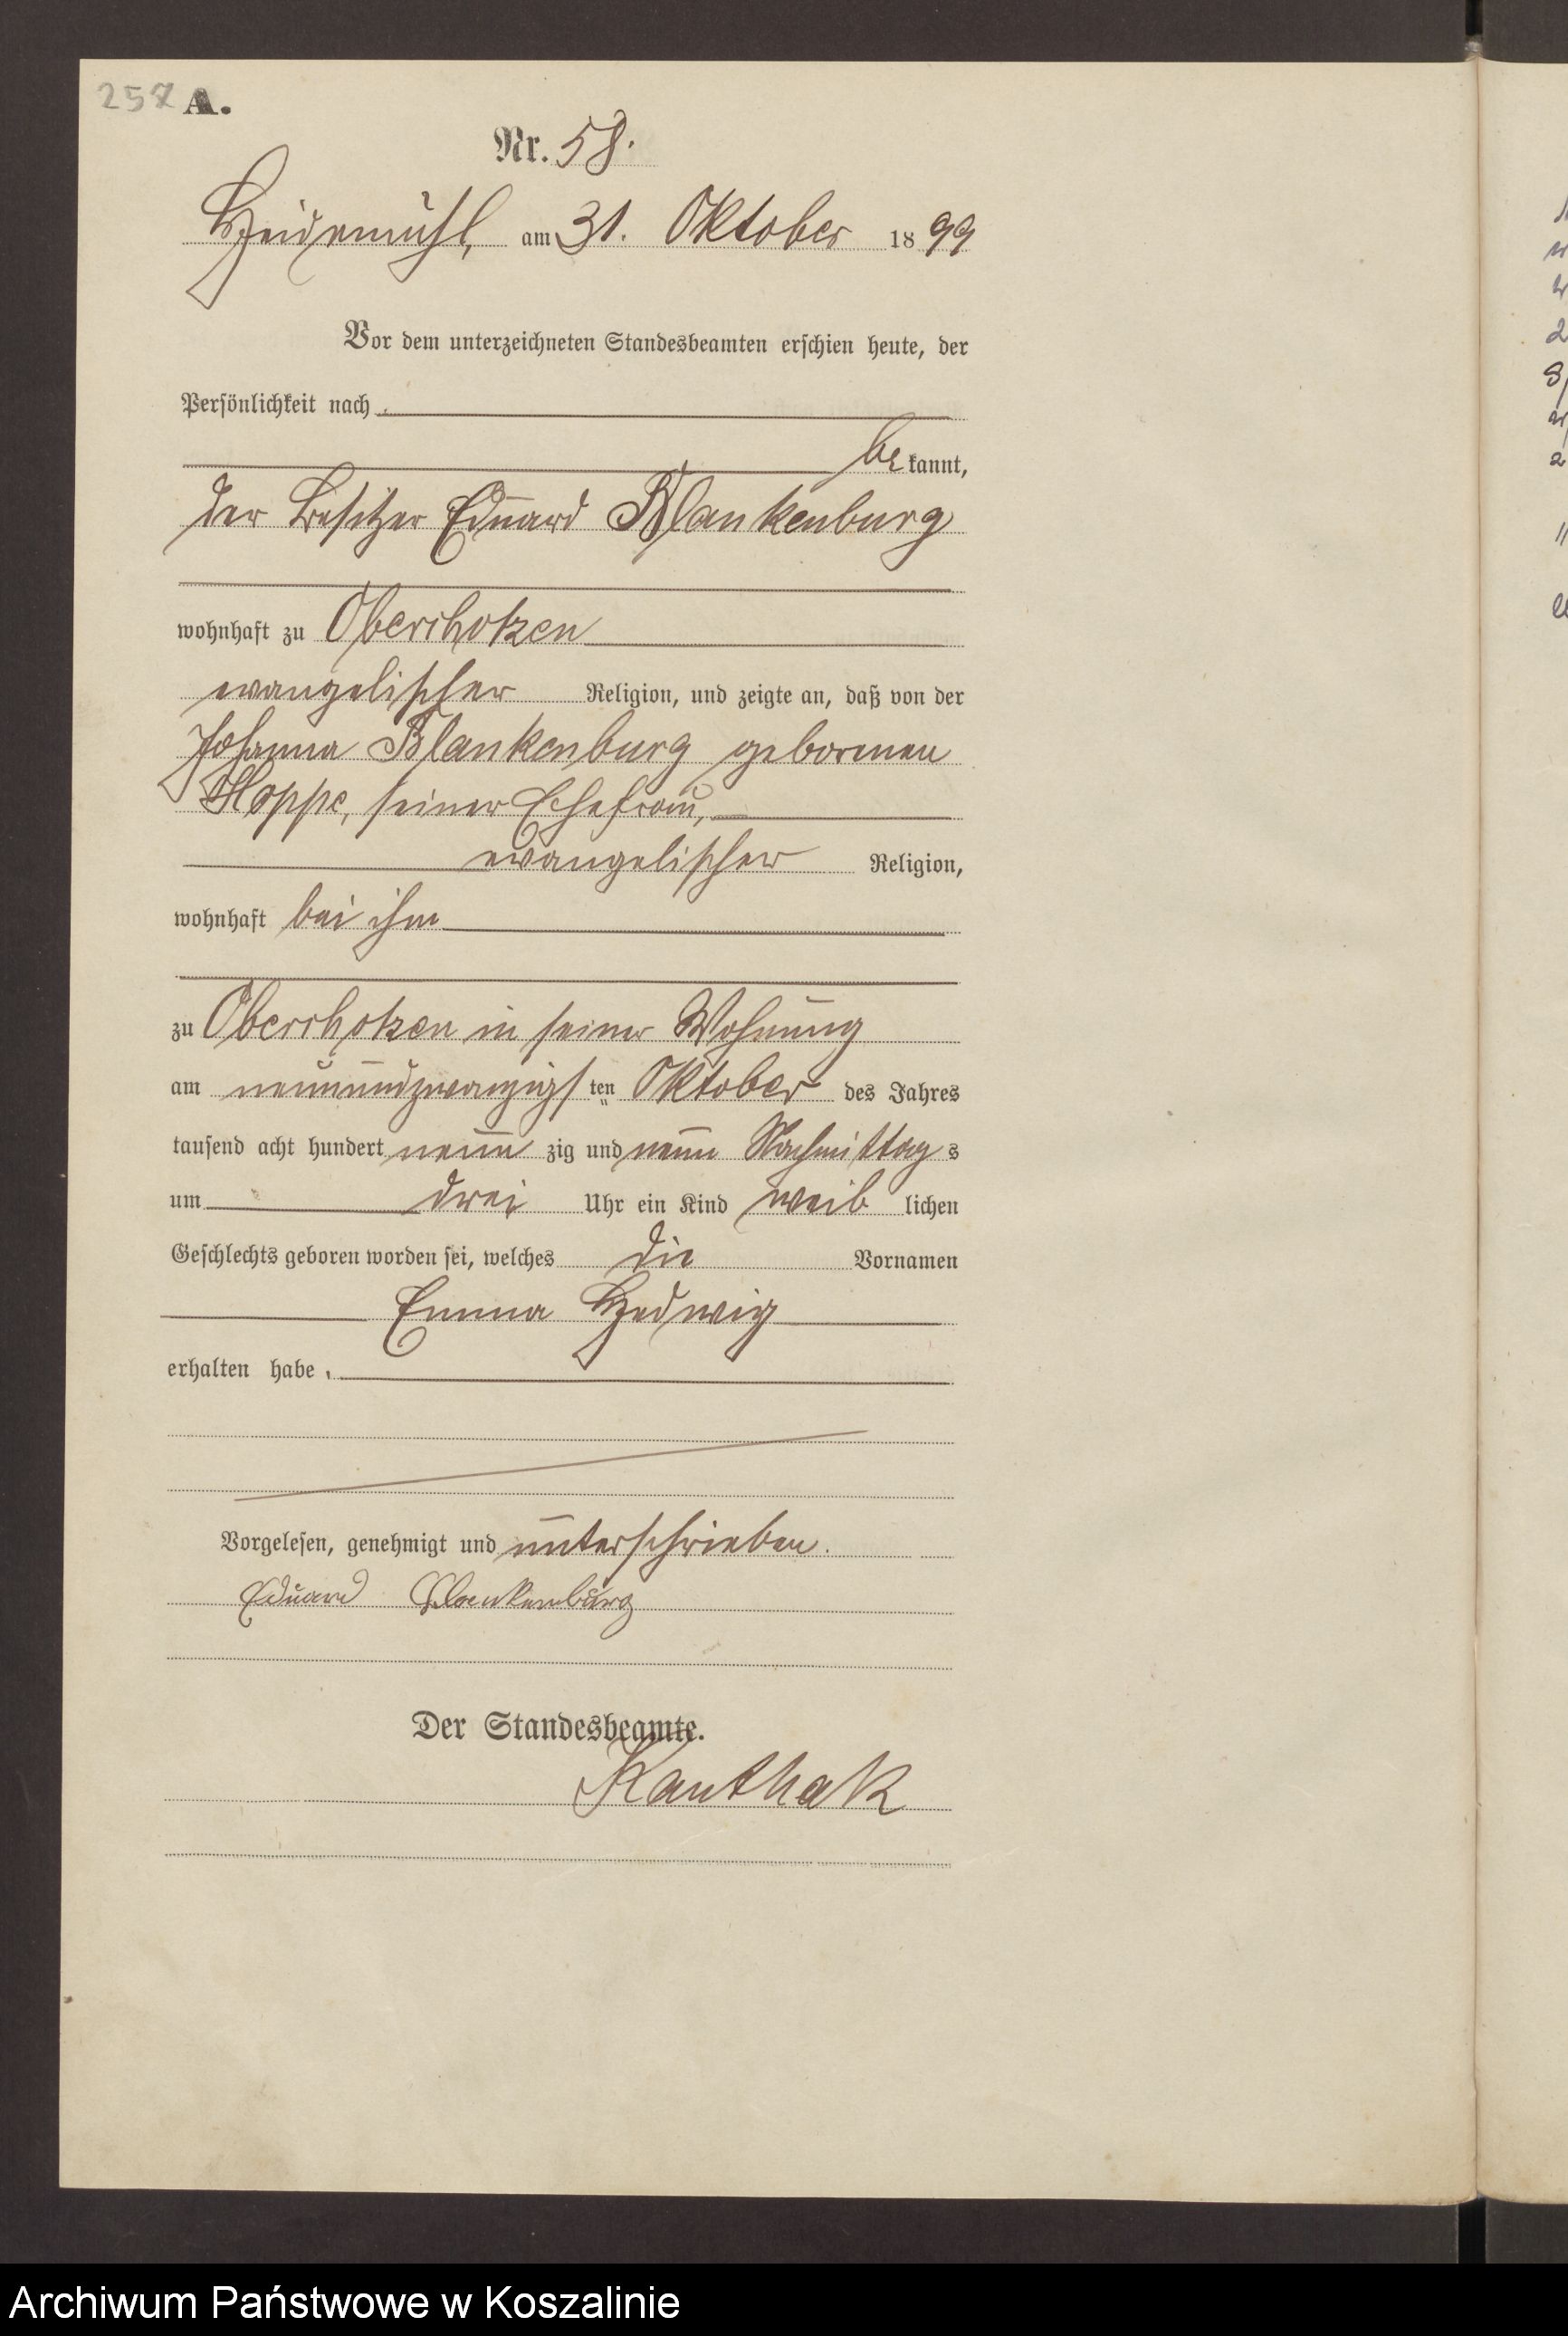 A.
Nr. 58.
Heidemühl, am 31. Oktober 1899
Vor dem unterzeichneten Standesbeamten erschien heute, der
Persönlichkeit nach
be kannt,
der Besitzer Eduard Blankenburg
wohnhaft zu Oberchotzen
evangelischer Religion, und zeigte an, daß von der
Johanna Blankenburg geborenen
Hoppe, seiner Ehefrau,
evangelischer Religion,
wohnhaft bei ihm
zu Oberchotzen in seiner Wohnung
am neunundzwanzigsten Oktober des Jahres
tausend acht hundert neun zig und neun Nachmittag s
um drei Uhr ein Kind weib lichen
Geschlechts geboren worden sei, welches die Vornamen
Emma Hedwig
erhalten habe.
Vorgelesen, genehmigt und unterschrieben.
Eduard Blankenburg
Der Standesbeamte.
Kauthak
Archiwum Państwowe w Koszalinie